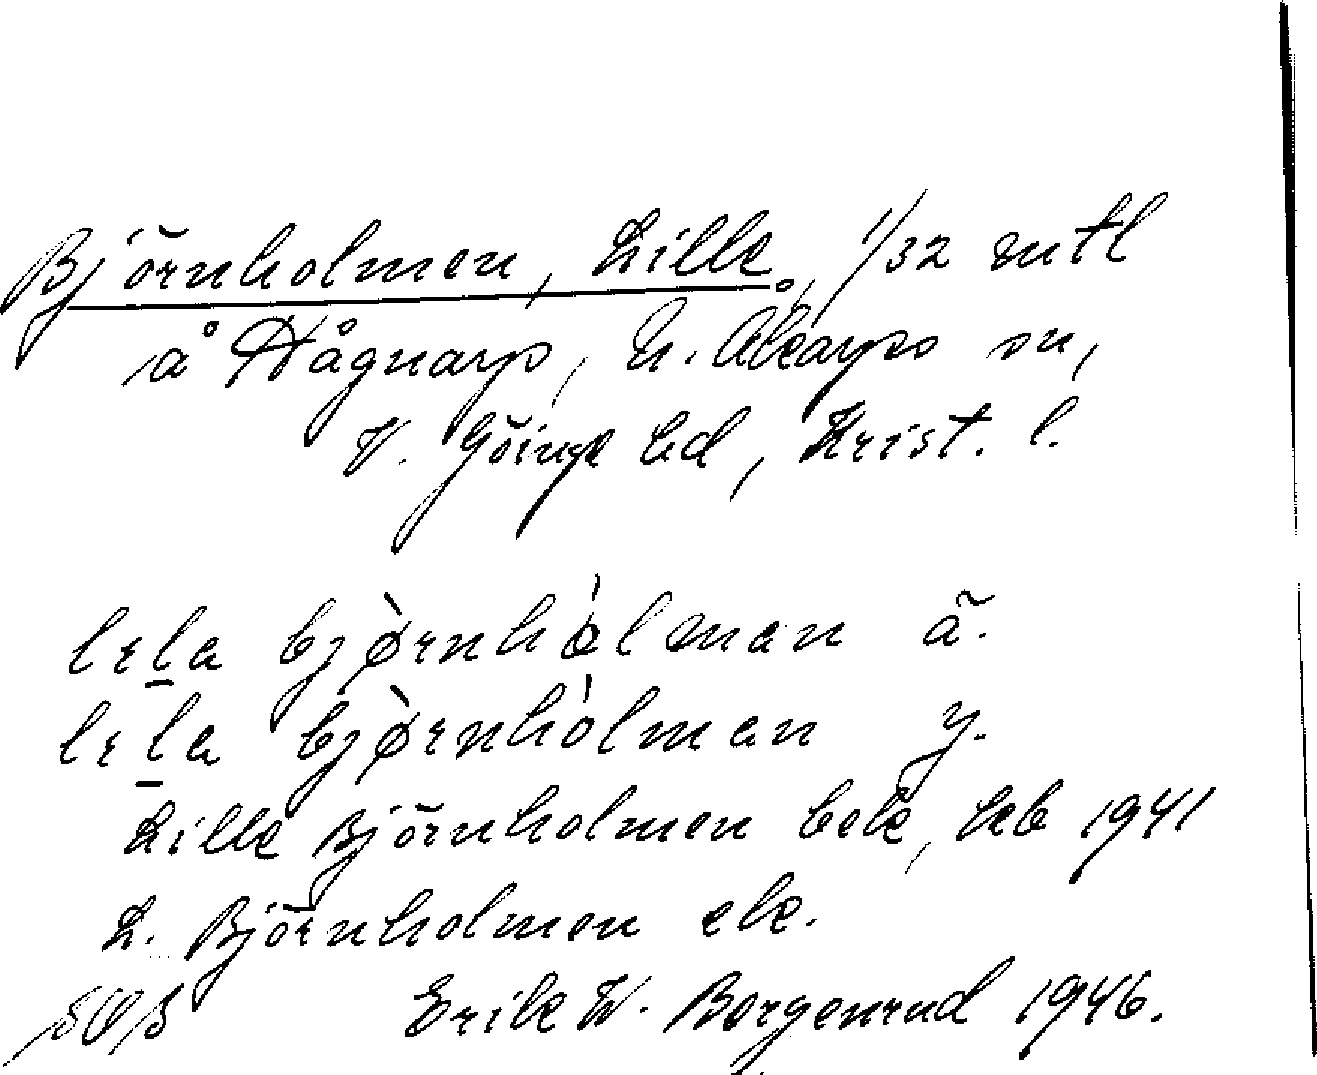 Björnholmen, Lille, 1/32 mtl
å Hågnarp, N. Åkarps sn,
V. Göinge hd, Krist. l.
lela bjørnhólman ä.
lela bjørnhólman y.
Lille Björnholmen bek, hb 1941
L. Björnholmen ek.
Erik W. Borgenrud 1946.